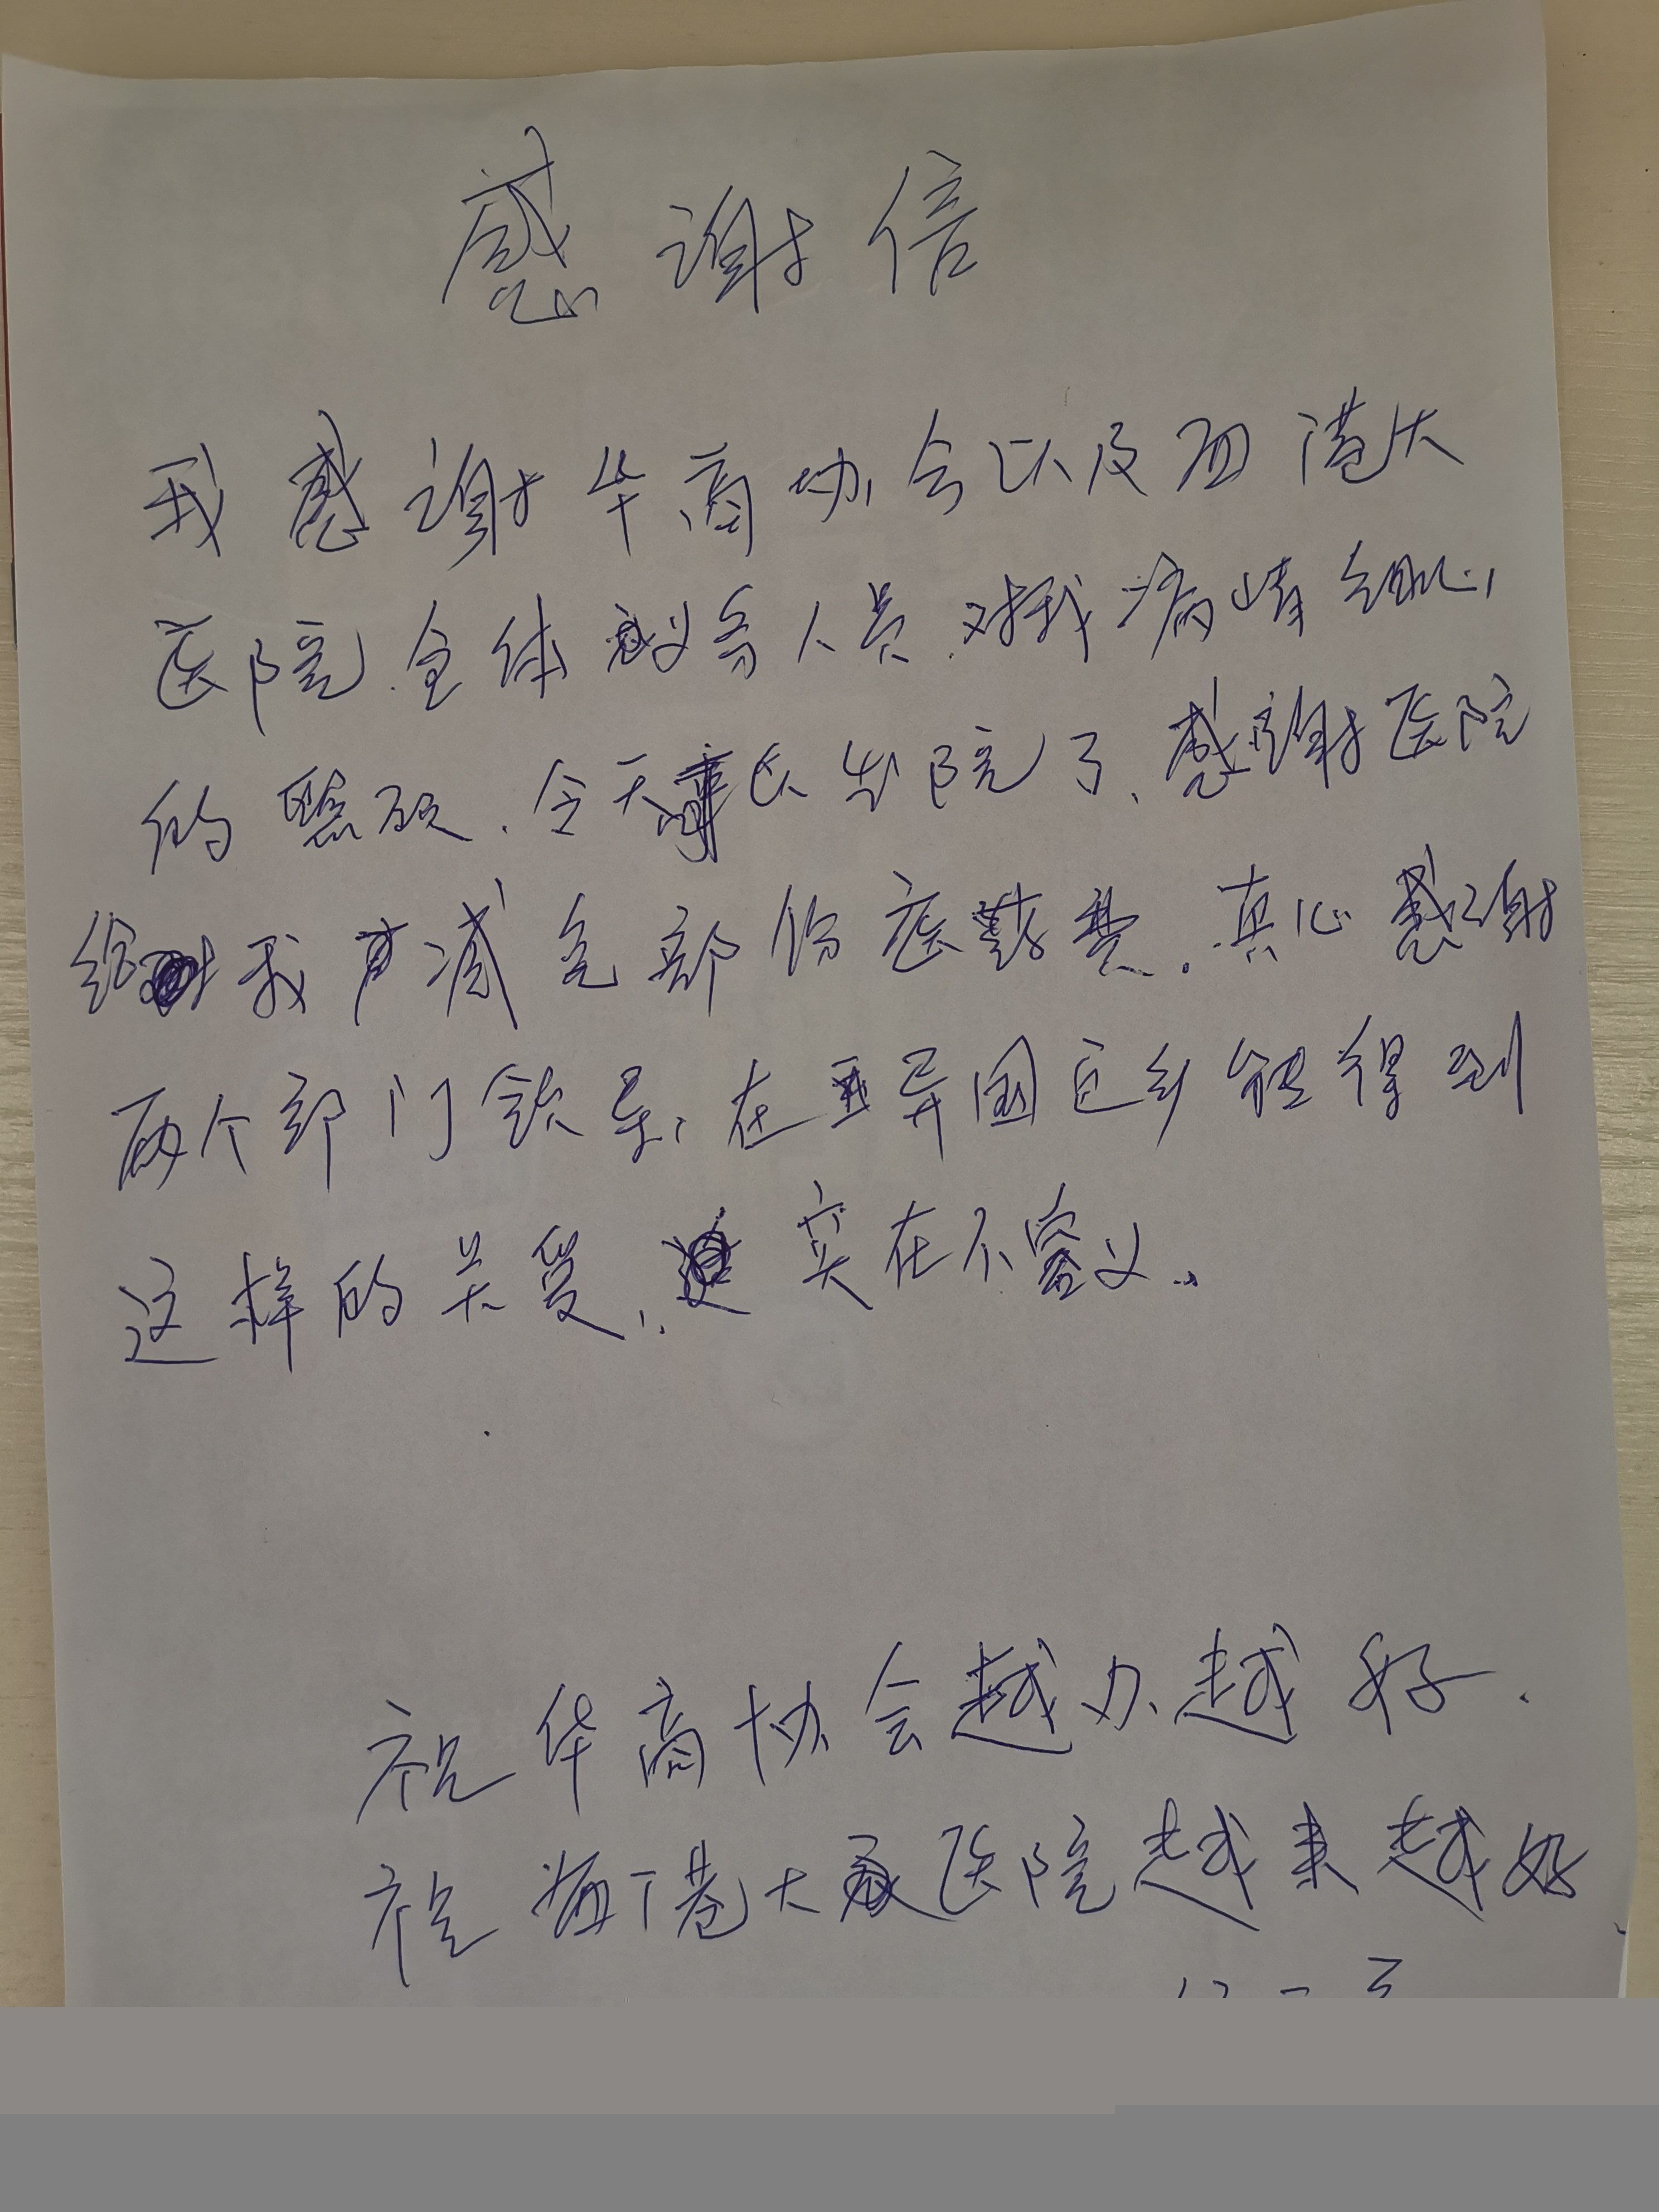 感谢信
我感谢华商协会以及西港大
医院.全体义务人员.对我病情细心
的照顾.今天 出院了、感谢医院
给我减免部份医药费.真心感谢
两个部门领导、在异国它乡能得到
这样的关爱、实在不容义、
祝华商协会越办越好.
祝西港大医院越来越好